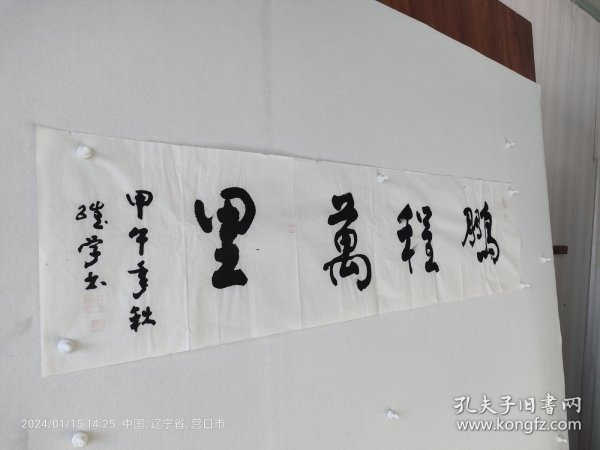 鵬程萬里
甲午年秋
继学书
2024/01/15 14:25 中国,辽宁省,营口市
孔夫子旧书网
www.kongfz.com